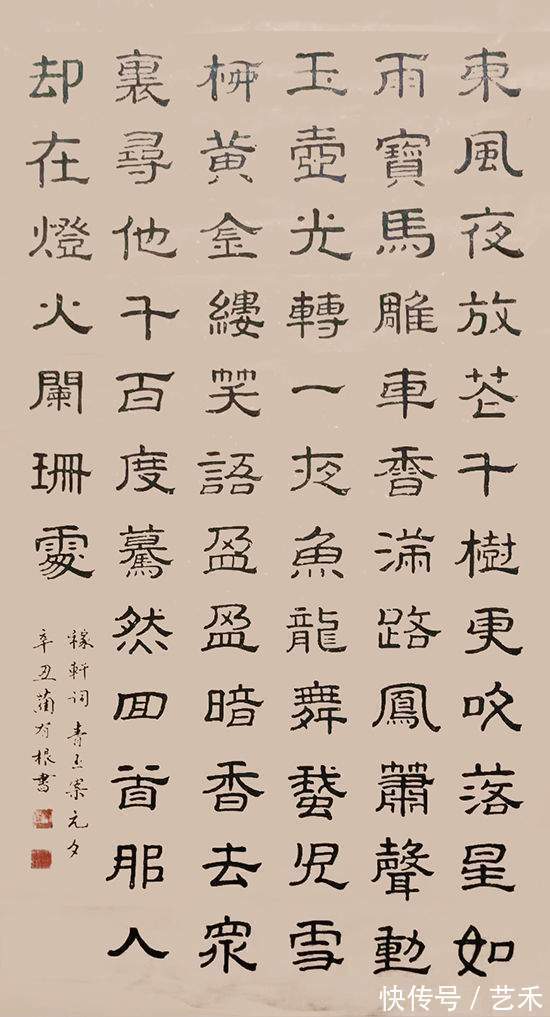 東風夜放花千樹更吹落星如
雨寶馬雕車香滿路鳳蕭聲動
玉壺光轉一夜魚龍舞蛾兒雪
柳黃金縷笑語盈盈暗香去眾
裏尋他千百度驀然回首那人
却在燈火闌珊處
稼軒詞青玉案元夕
辛丑藺有根書
快传号 / 艺禾